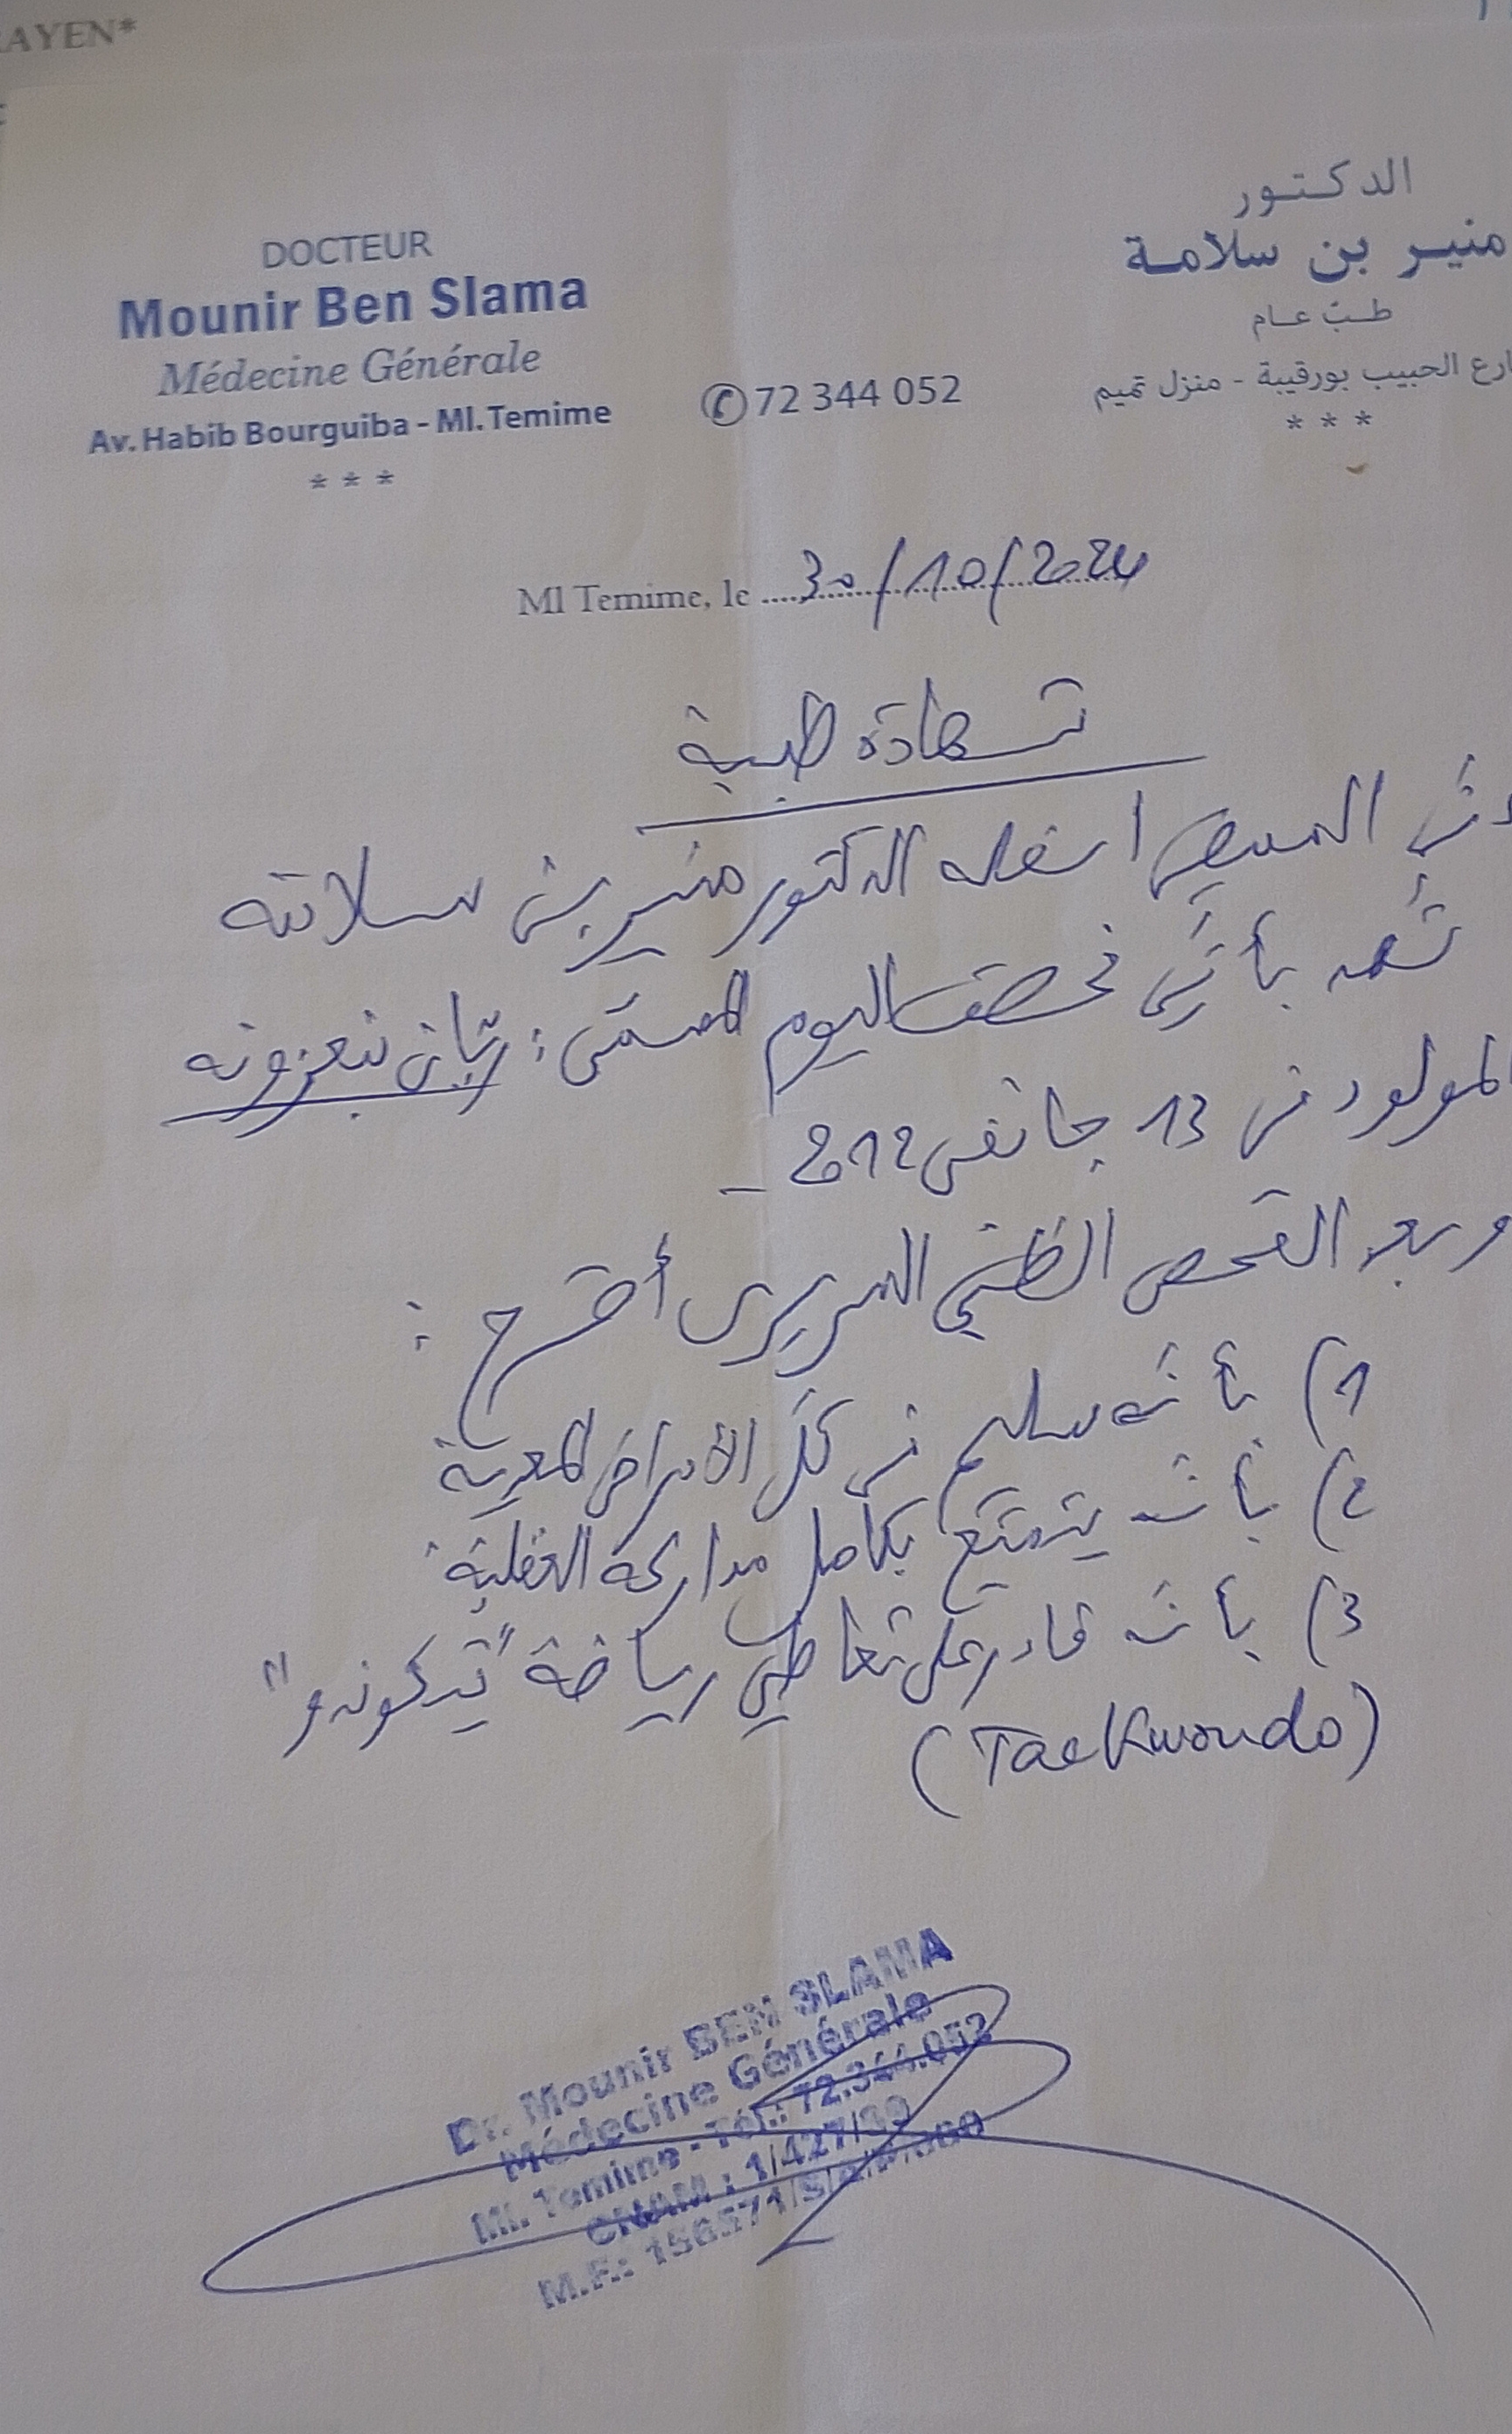 RAYEN*
DOCTEUR
Mounir Ben Slama
Médecine Générale
Av. Habib Bourguiba - Ml. Temime
* * *
✆ 72 344 052
الدكتور
منير بن سلامة
طب عام
ارع الحبيب بورقيبة - منزل تميم
* * *
Ml Temime, le 30/10/2024
شهادة طبية
الممضي اسفله الدكتور منير بن سلامة
أشهد بأني فحصت اليوم المسمى :
المولود في 13 جانفي 2012 -
وبعد الفحص الطبي السريري أصرح :
1) بأنه سليم من كل الأمراض المعدية
2) بأنه يتمتع بكامل مداركه العقلية
3) بأنه قادر على تعاطي رياضة "تيكوندو"
(Taekwondo)
Dr. Mounir BEN SLAMA
Médecine Générale
Ml. Temime - Tél.: 72.344.052
CNAM : 1/427/99
M.F.: